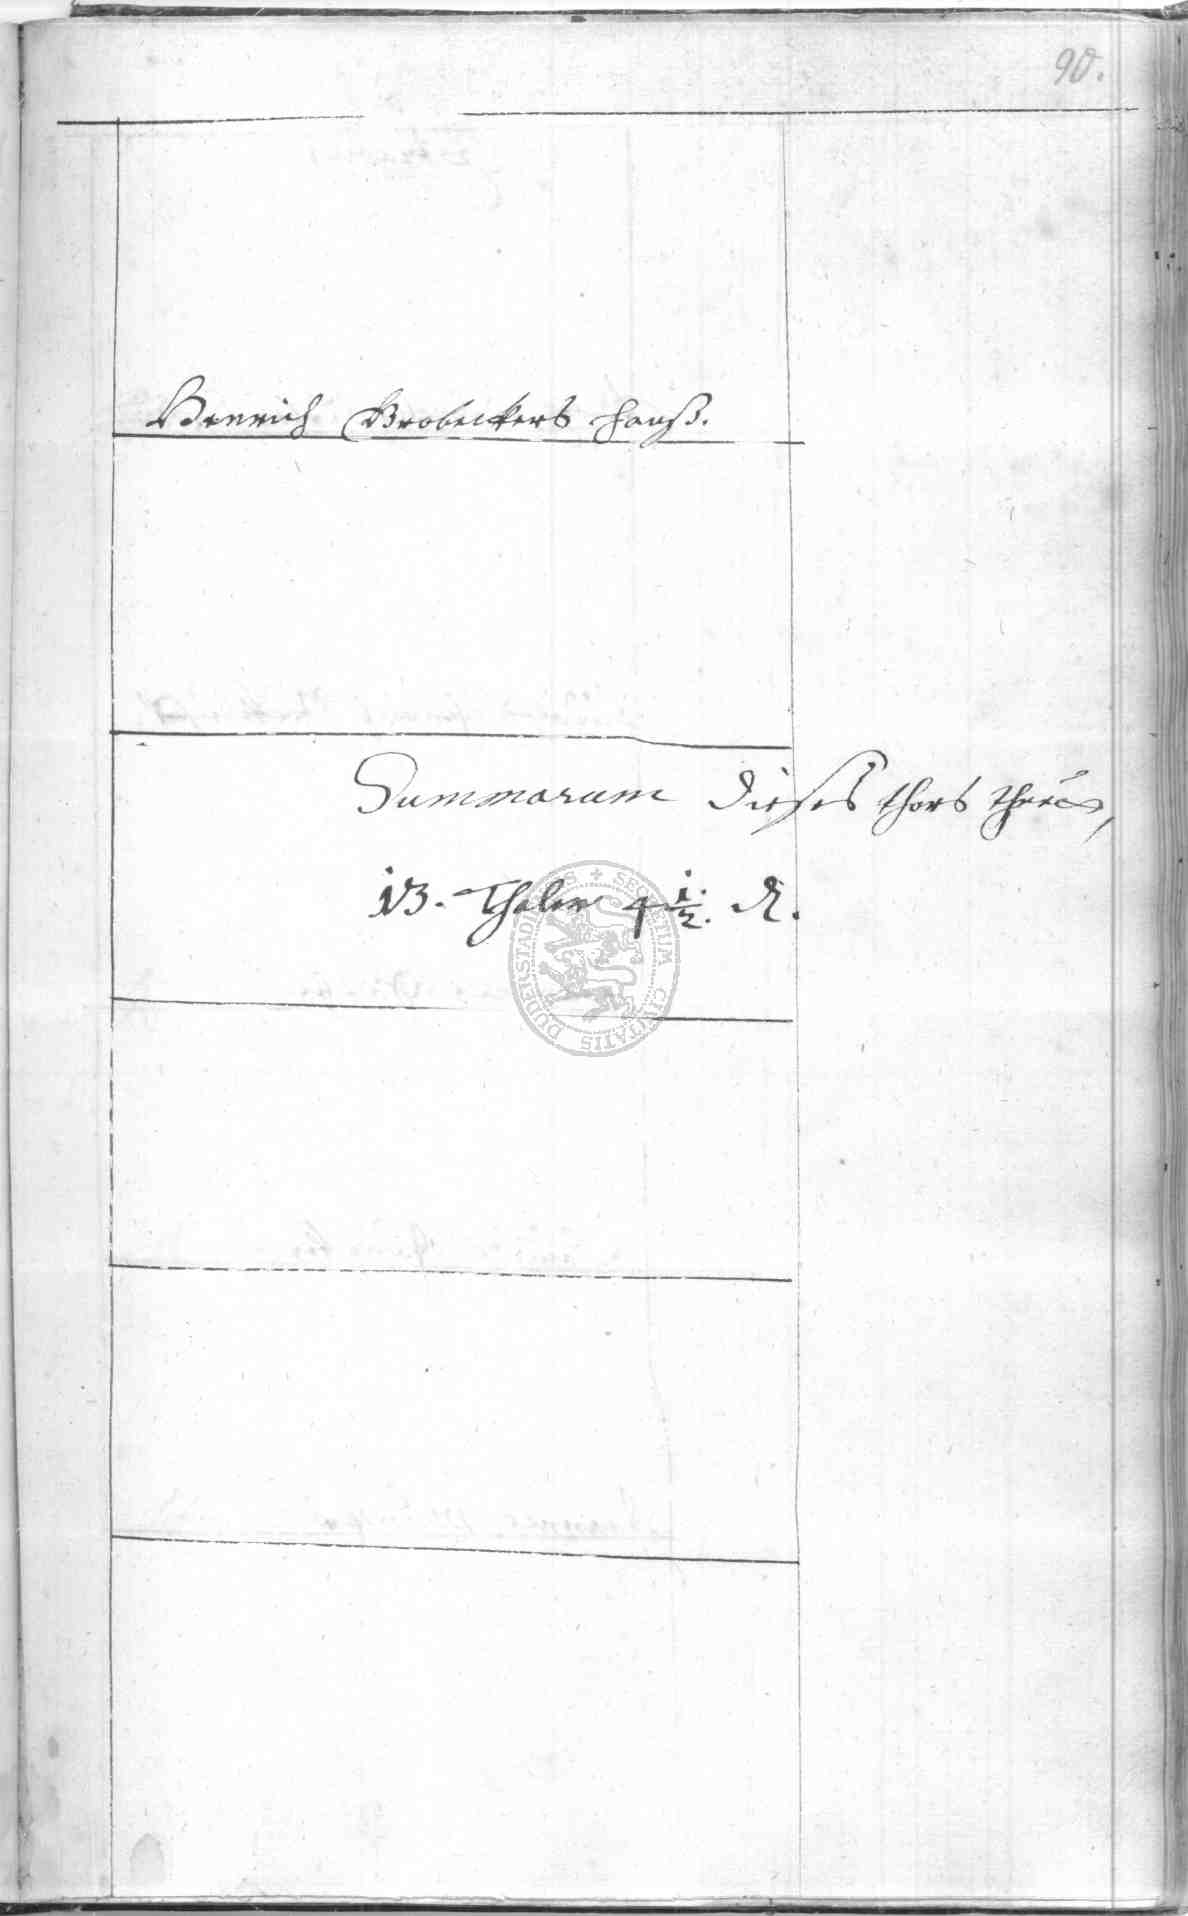 90.
Henrich Brobeckers Hauß.
Summarum dieses thors
13. Thaler 4 1/2. d.
SECRETUM CIVITATIS DUDERSTADIENSIS